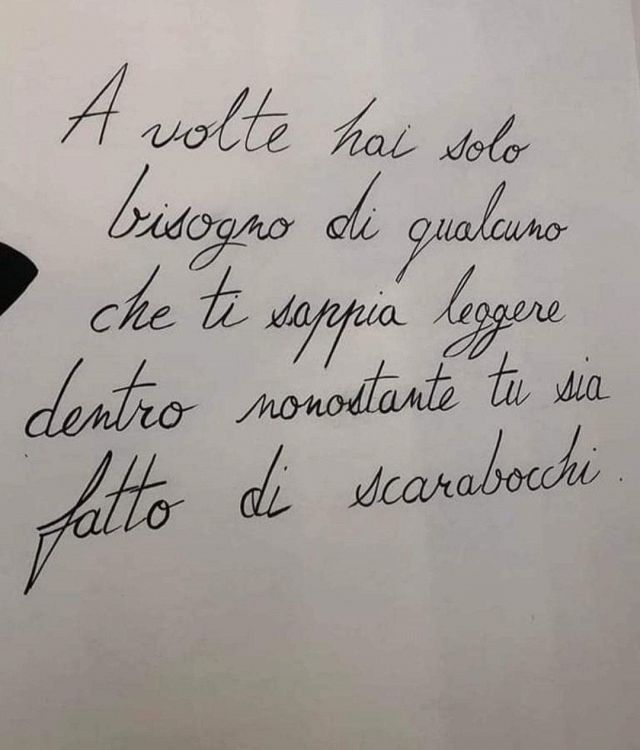 A volte hai solo
bisogno di qualcuno
che ti sappia leggere
dentro nonostante tu sia
fatto di scarabocchi.